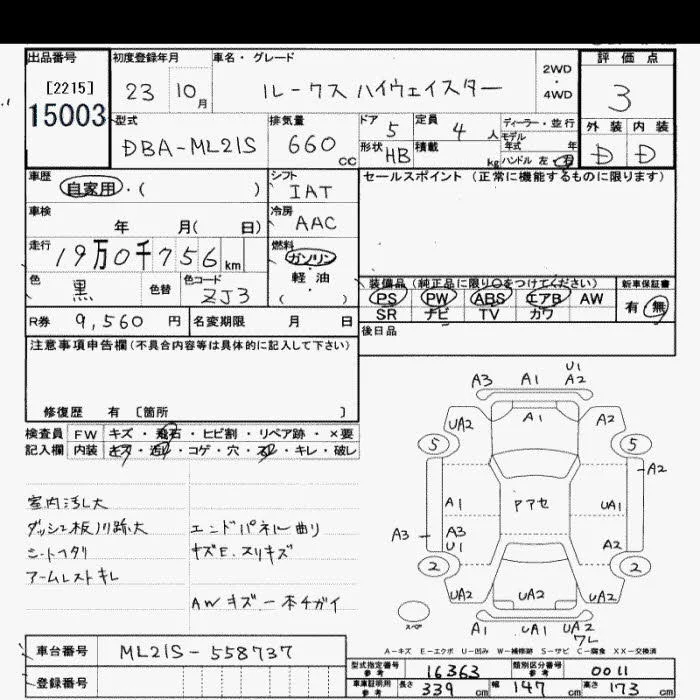 出品番号 初度登録年月 車名・グレード 評価点
[2215]
15003
23 10月 ルークス ハイウェイスター 2WD・4WD 3
型式 排気量 ドア 定員 ディーラー・並行 外装 内装
DBA-ML21S 660cc 5 4人 モデル年式 年 D D
形状 HB 積載 kg ハンドル 左・右
車歴 シフト セールスポイント(正常に機能するものに限ります)
自家用・( ) IAT
車検 冷房
年 月( 日) AAC
走行 燃料
19万0千756km ガソリン・軽油
( )
色 黒 色替 色コード ZJ3
装備品(純正品に限り○をつけてください) 新車保証書
PS PW ABS エアB AW 有・無
SR ナビ TV カワ
R券 9,560円 名変期限 月 日 後日品
注意事項申告欄(不具合内容等は具体的に記入して下さい)
修復歴 有 [箇所 ]
検査員 FW キズ・飛石・ヒビ割・リペア跡・×要
記入欄 内装 コゲ・穴・キレ・破し
室内汚レ大
ダッシュ板 跡大
アームレスト キレ
エンドパネル曲り
キズE.スリキズ
AWキズ 一本チガイ
A3 A1 U1 A2
UA2 A1 A2
5 5
A2
A1 アアセ UA1
A3 A3 U1 A2
2 2
UA2 UA2 UA2
スペア
A1 UA1 UA2 ワレ
A-キズ E-エクボ U-凹み W-補修跡 S-サビ C-腐食 XX-交換済
車台番号 ML21S-558737
登録番号
型式指定番号 参考 16363 類別区分番号 参考 0011
車庫証明用 参考 長さ 339cm 幅 147cm 高さ 173cm